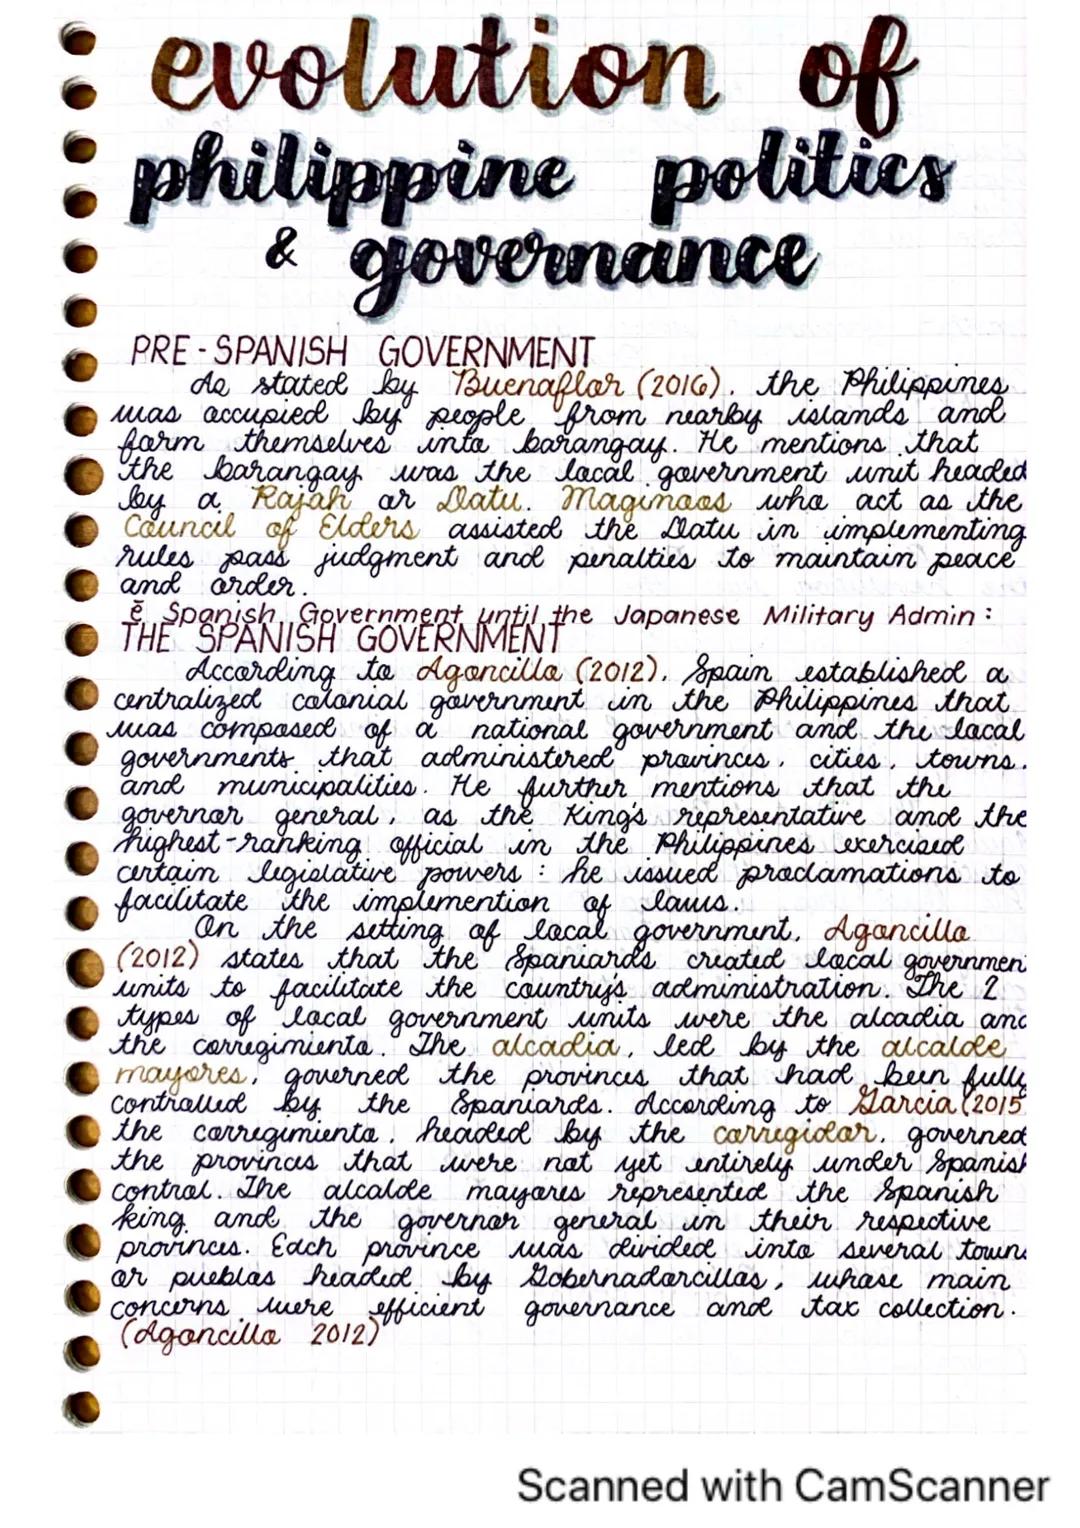 evolution of
philippine politics
& governance
PRE-SPANISH GOVERNMENT
As stated by Buenaflor (2016), the Philippines
was occupied by people from nearby islands and
form themselves into barangay. He mentions that
the barangay was the local government unit headed
by a Rajah or Datu. Maginoos who act as the
Council of Elders assisted the Datu in implementing
rules pass judgment and penalties to maintain peace
and order.
ẽ Spanish Government until the Japanese Military Admin:
THE SPANISH GOVERNMENT
According to Agoncillo (2012), Spain established a
centralized colonial government in the Philippines that
was composed of a national government and the local
governments that administered provinces, cities, towns,
and municipalities. He further mentions that the
governor general, as the King's representative and the
highest-ranking official in the Philippines exercised
certain legislative powers: he issued proclamations to
facilitate the implemention of laws.
On the setting of local government, Agoncillo
(2012) states that the Spaniards created local governmen
units to facilitate the country's administration. The 2
types of local government units were the alcadia and
the corregimiento. The alcadia, led by the alcalde
mayores, governed the provinces that had been fully
controlled by the Spaniards. According to Garcia (2015
the corregimiento, headed by the corregidor, governed
the provinces that were not yet entirely under Spanish
control. The alcalde mayores represented the Spanish
king and the governor general in their respective
provinces. Each province was divided into several towns
or pueblos headed by Gobernadorcillos, whose main
concerns were efficient governance and tax collection.
(Agoncillo 2012)
Scanned with CamScanner